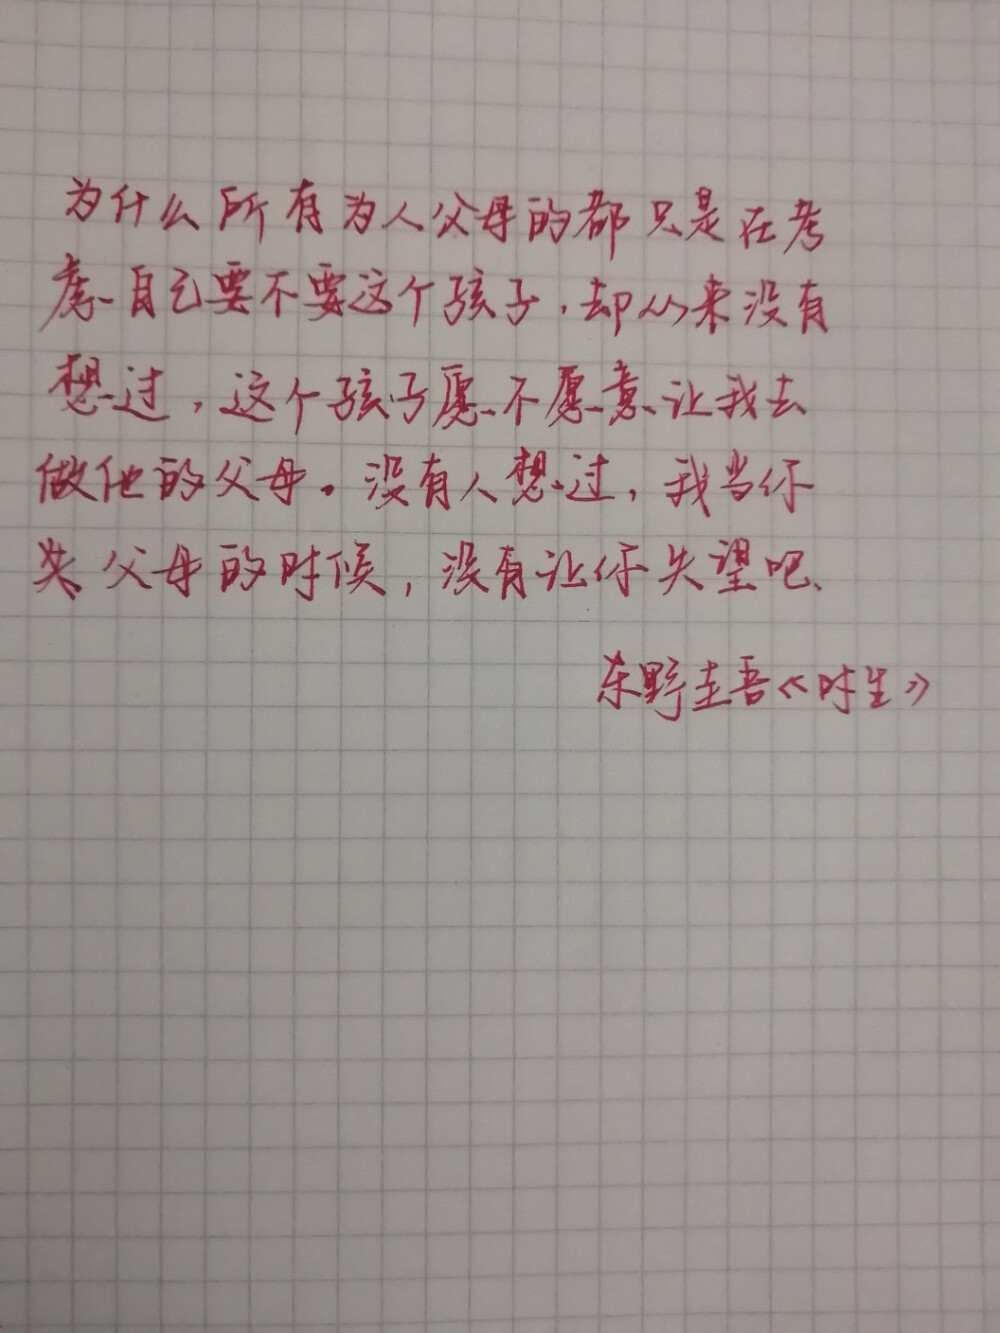 为什么所有为人父母的都只是在考
虑自己要不要这个孩子，却从来没有
想过，这个孩子愿不愿意让我去
做他的父母。没有人想过，我当你
父母的时候，没有让你失望吧、
东野圭吾《时生》